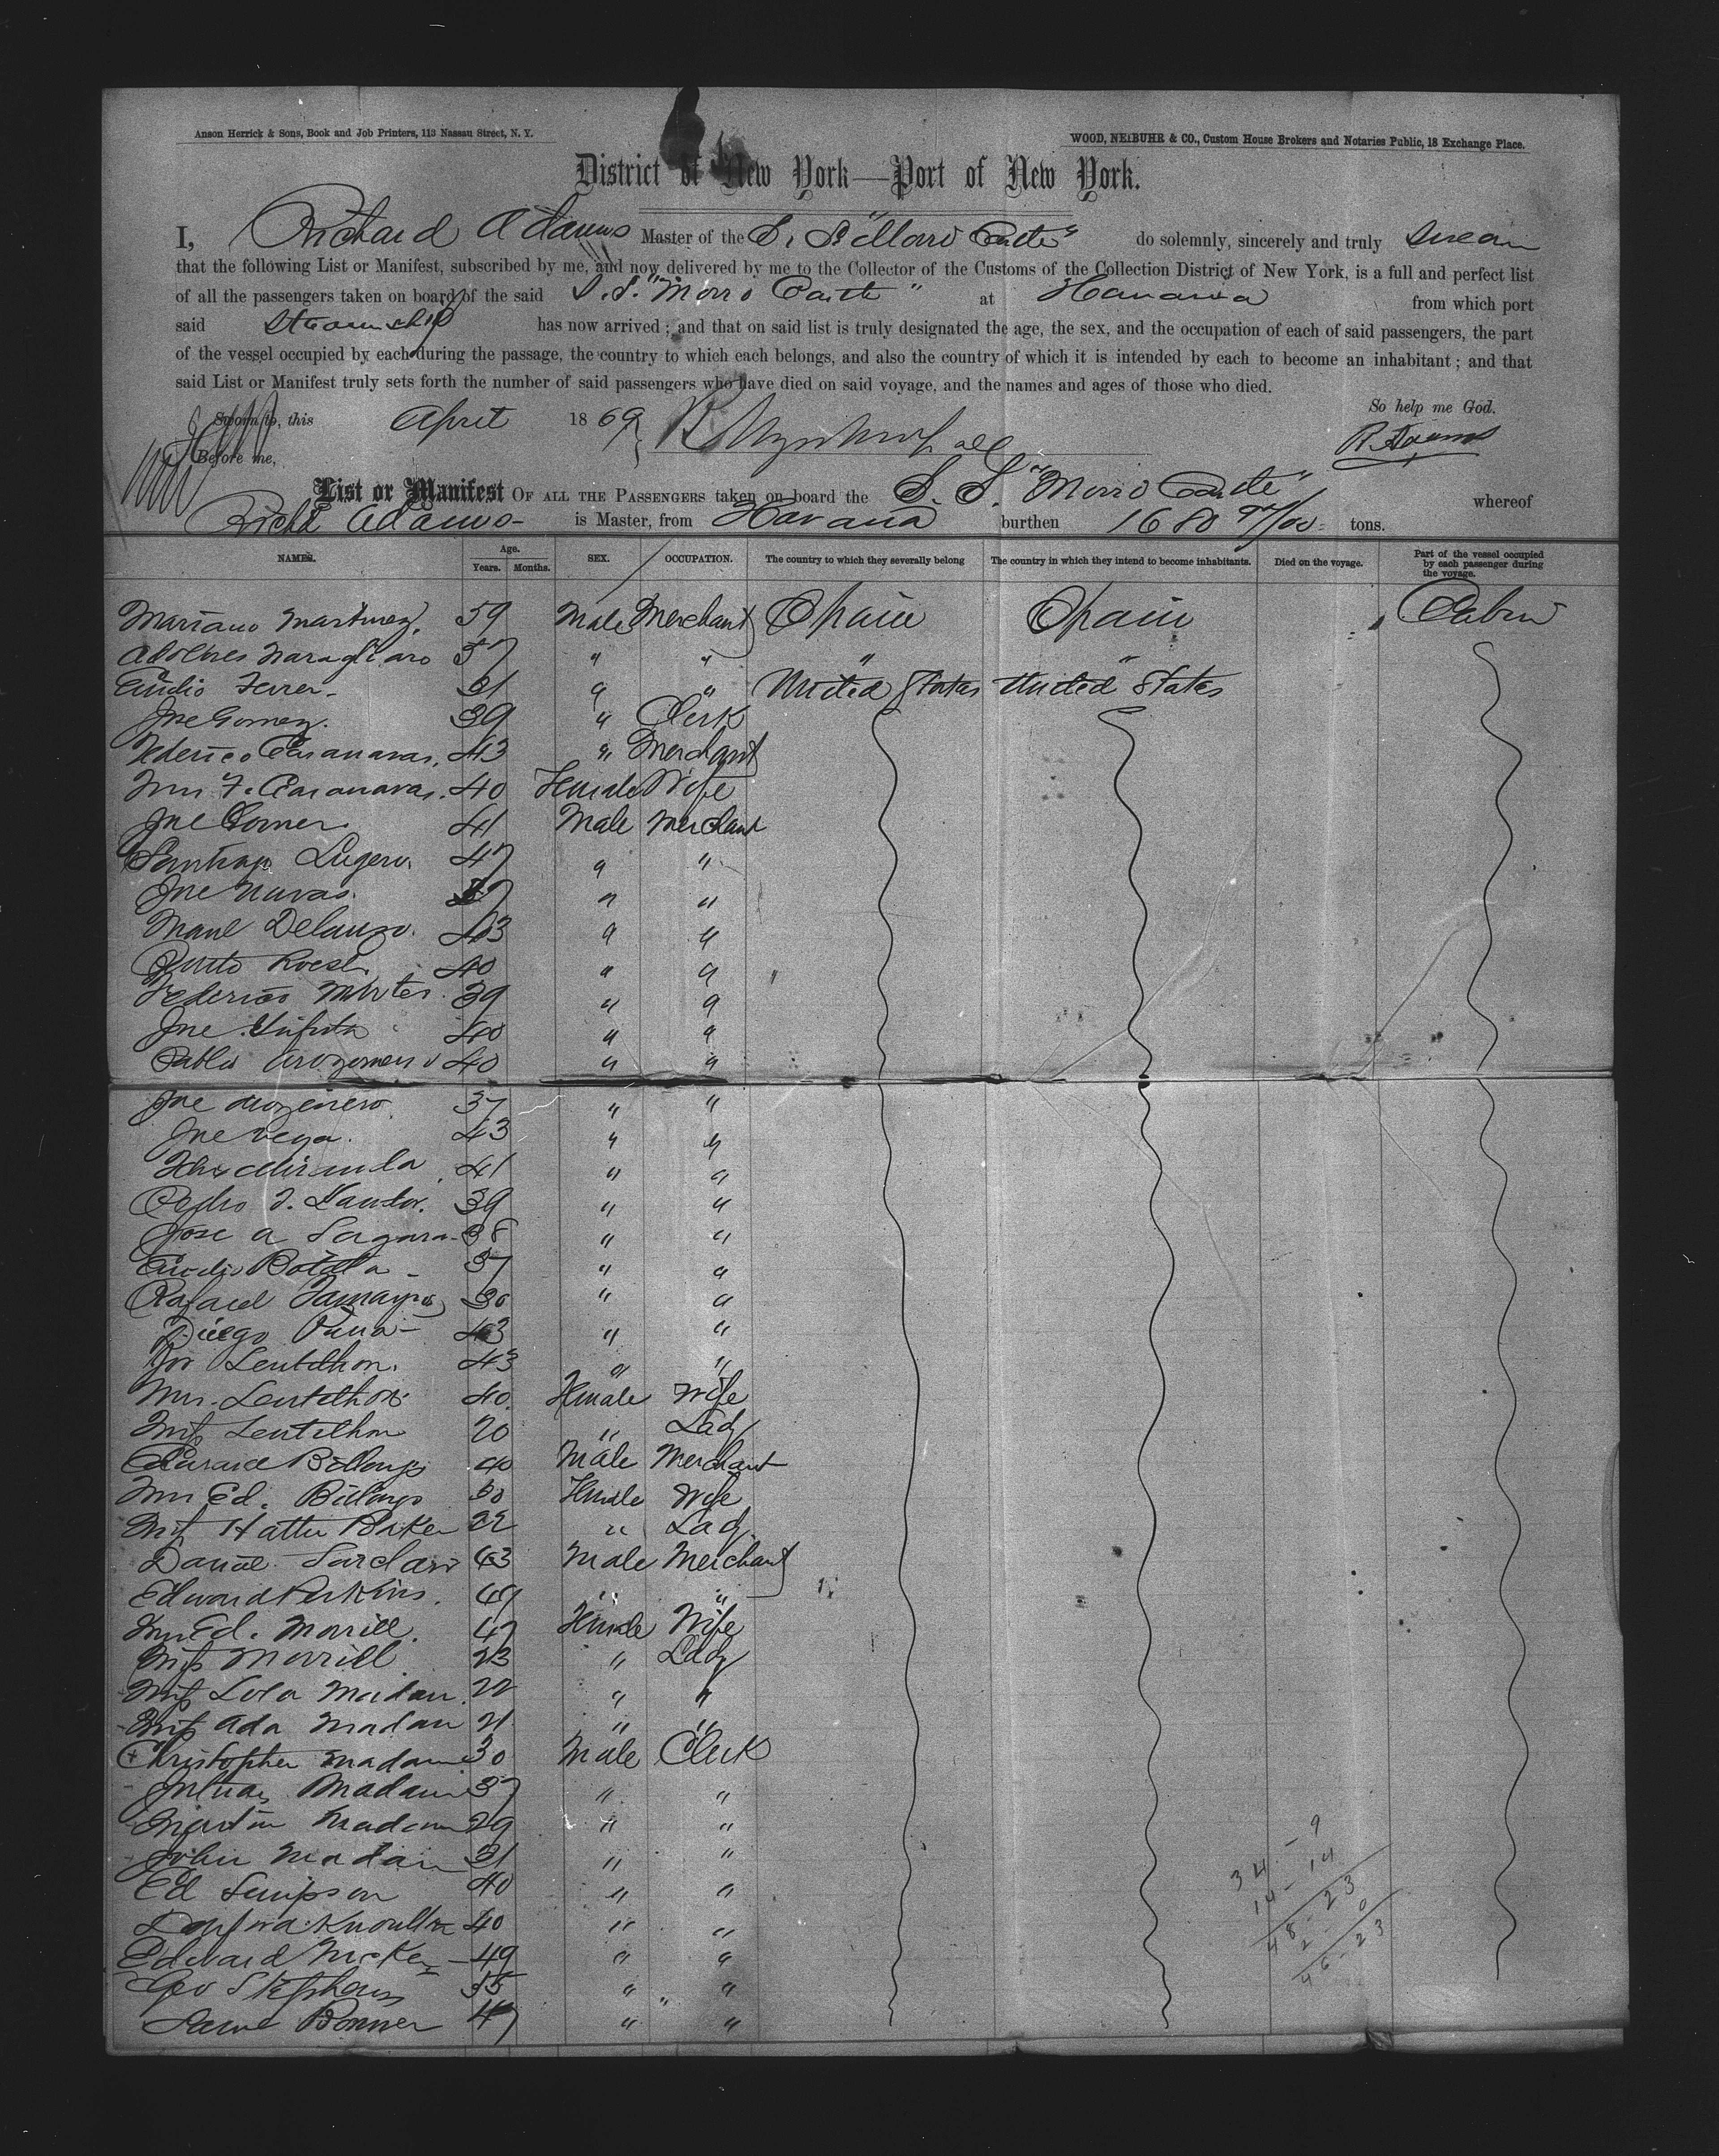 Anson Herrick & Sons, Book and Job Printers, 113 Nassau Street, N. Y.
WOOD, NEIBUHR & CO., Custom House Brokers and Notaries Public, 18 Exchange Place.
District of New York—Port of New York.
I, Richard Adams Master of the S. S. "Morro Castle" do solemnly, sincerely and truly swear
that the following List or Manifest, subscribed by me, and now delivered by me to the Collector of the Customs of the Collection District of New York, is a full and perfect list
of all the passengers taken on board of the said S. S. "Morro Castle" at Havana from which port
said Steamship has now arrived; and that on said list is truly designated the age, the sex, and the occupation of each of said passengers, the part
of the vessel occupied by each during the passage, the country to which each belongs, and also the country of which it is intended by each to become an inhabitant; and that
said List or Manifest truly sets forth the number of said passengers who have died on said voyage, and the names and ages of those who died.
So help me God.
Sworn to, this April 1869
R Adams
Before me,
List or Manifest OF ALL THE PASSENGERS taken on board the S. S. "Morro Castle" whereof
Richd Adams is Master, from Havana burthen 1680 /100 tons.
NAMES. Age. Years. Months. SEX. OCCUPATION. The country to which they severally belong The country in which they intend to become inhabitants. Died on the voyage. Part of the vessel occupied by each passenger during the voyage.
Mariano Martinez. 59 Male Merchant Spain Spain Cabin
37 " " " "
Ferrer 31 " " United States United States
Jne Gomez. 39 " Clerk
Federico Casanavas. 43 " Merchant
Mrs F. Casanavas. 40 Female Wife
Jne 41 Male Merchant
Santiago Lugero. 47 " "
Jne Navas. 37 " "
Manl 43 " "
40 " "
Federico 39 " "
Jne 40 " "
Pablo 40 " "
Jne 37 " "
Jne Vega. 43 " "
Miranda 41 " "
Pedro 39 " "
Jose A 38 " "
37 " "
Rafael Tamayo 30 " "
Diego 43 " "
Lentilhon. 43 " "
Mrs. Lentilhon 40. Female Wife
Miss Lentilhon 20 " Lady
Edward Billings 40 Male Merchant
Mrs Ed. Billings 30 Female Wife
Miss Hattie Baker 22 " Lady
Daniel 43 Male Merchant
Edward Perkins. 49 " "
Mrs Ed. Morrill. 47 Female Wife
Miss Morrill 23 " Lady
Miss Lola Madan. 22 " "
Miss Ada Madan 21 " "
Christopher Madan 30 Male Clerk
Madan 37 " "
Martin Madan 29 " "
John Madan 31 " "
Ed Simpson 40 " "
Knoulton 40 " "
Edward 49 " "
Geo Stephens 55 " "
Bonner 47 " "
34 - 9
14 - 14
48 - 23
2 - 0
46 - 23